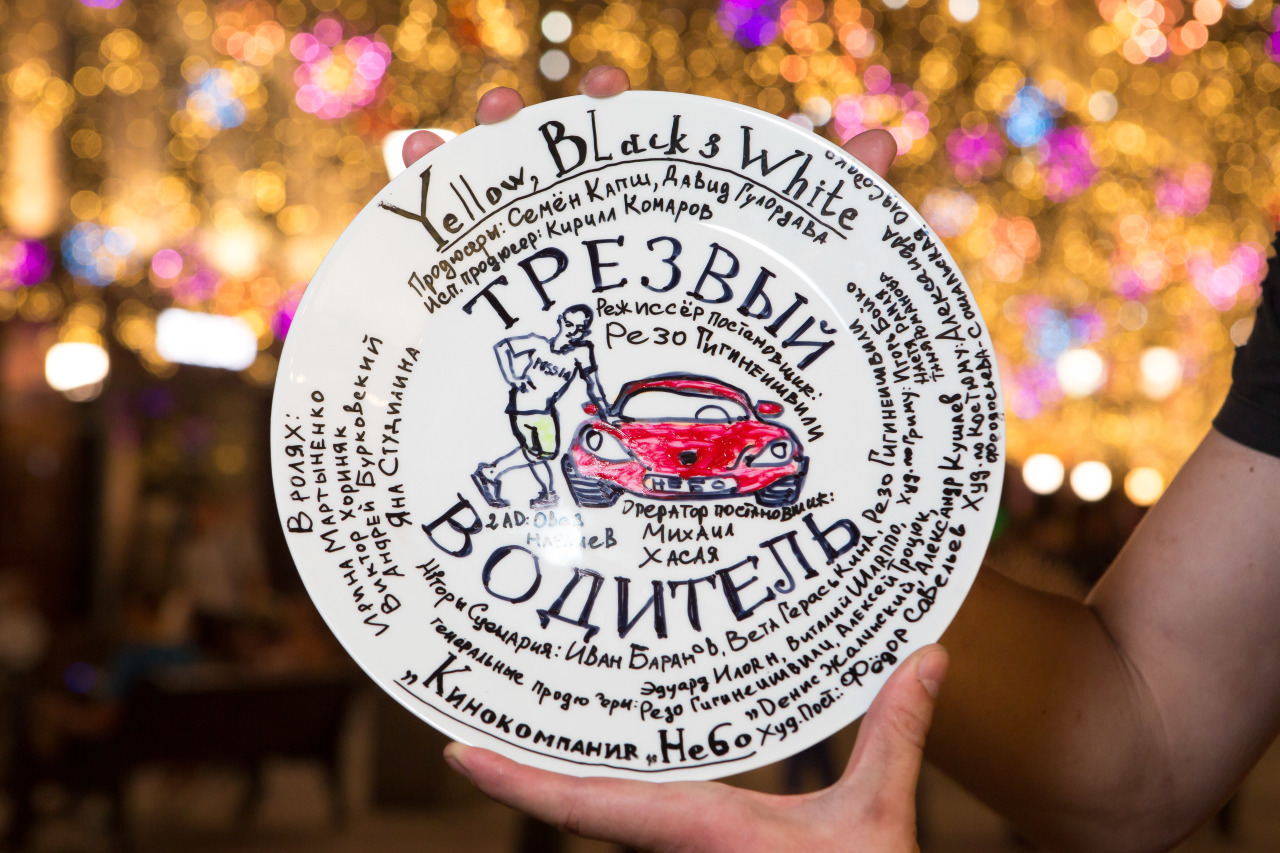 Yellow, Black & White
Продюсеры: Семён Капш, Давид Гулордава
Исп. продюсер: Кирилл Комаров
ТРЕЗВЫЙ
Режиссёр постановщик:
Резо Гигинеишвили
RUSSIA
НЕБО
2AD: Овез
Оператор постановщик:
Михаил
Хасая
ВОДИТЕЛЬ
В ролях:
Ирина Мартыненко
Виктор Хориняк
Андрей Бурковский
Яна Студилина
Сценария: Иван Баранов, Вета Гераськина, Резо Гигинеишвили
Генеральные продюсеры: Эдуард Илоян, Виталий Шляппо,
Резо Гигинеишвили, Алексей Троцюк,
Денис Жалинский, Александр Кушаев
Худ. пост.: Фёдор Савельев
Худ. по гриму: Игорь Бойко
Худ по костюму: Александра Социальская
„Кинокомпания „Небо"